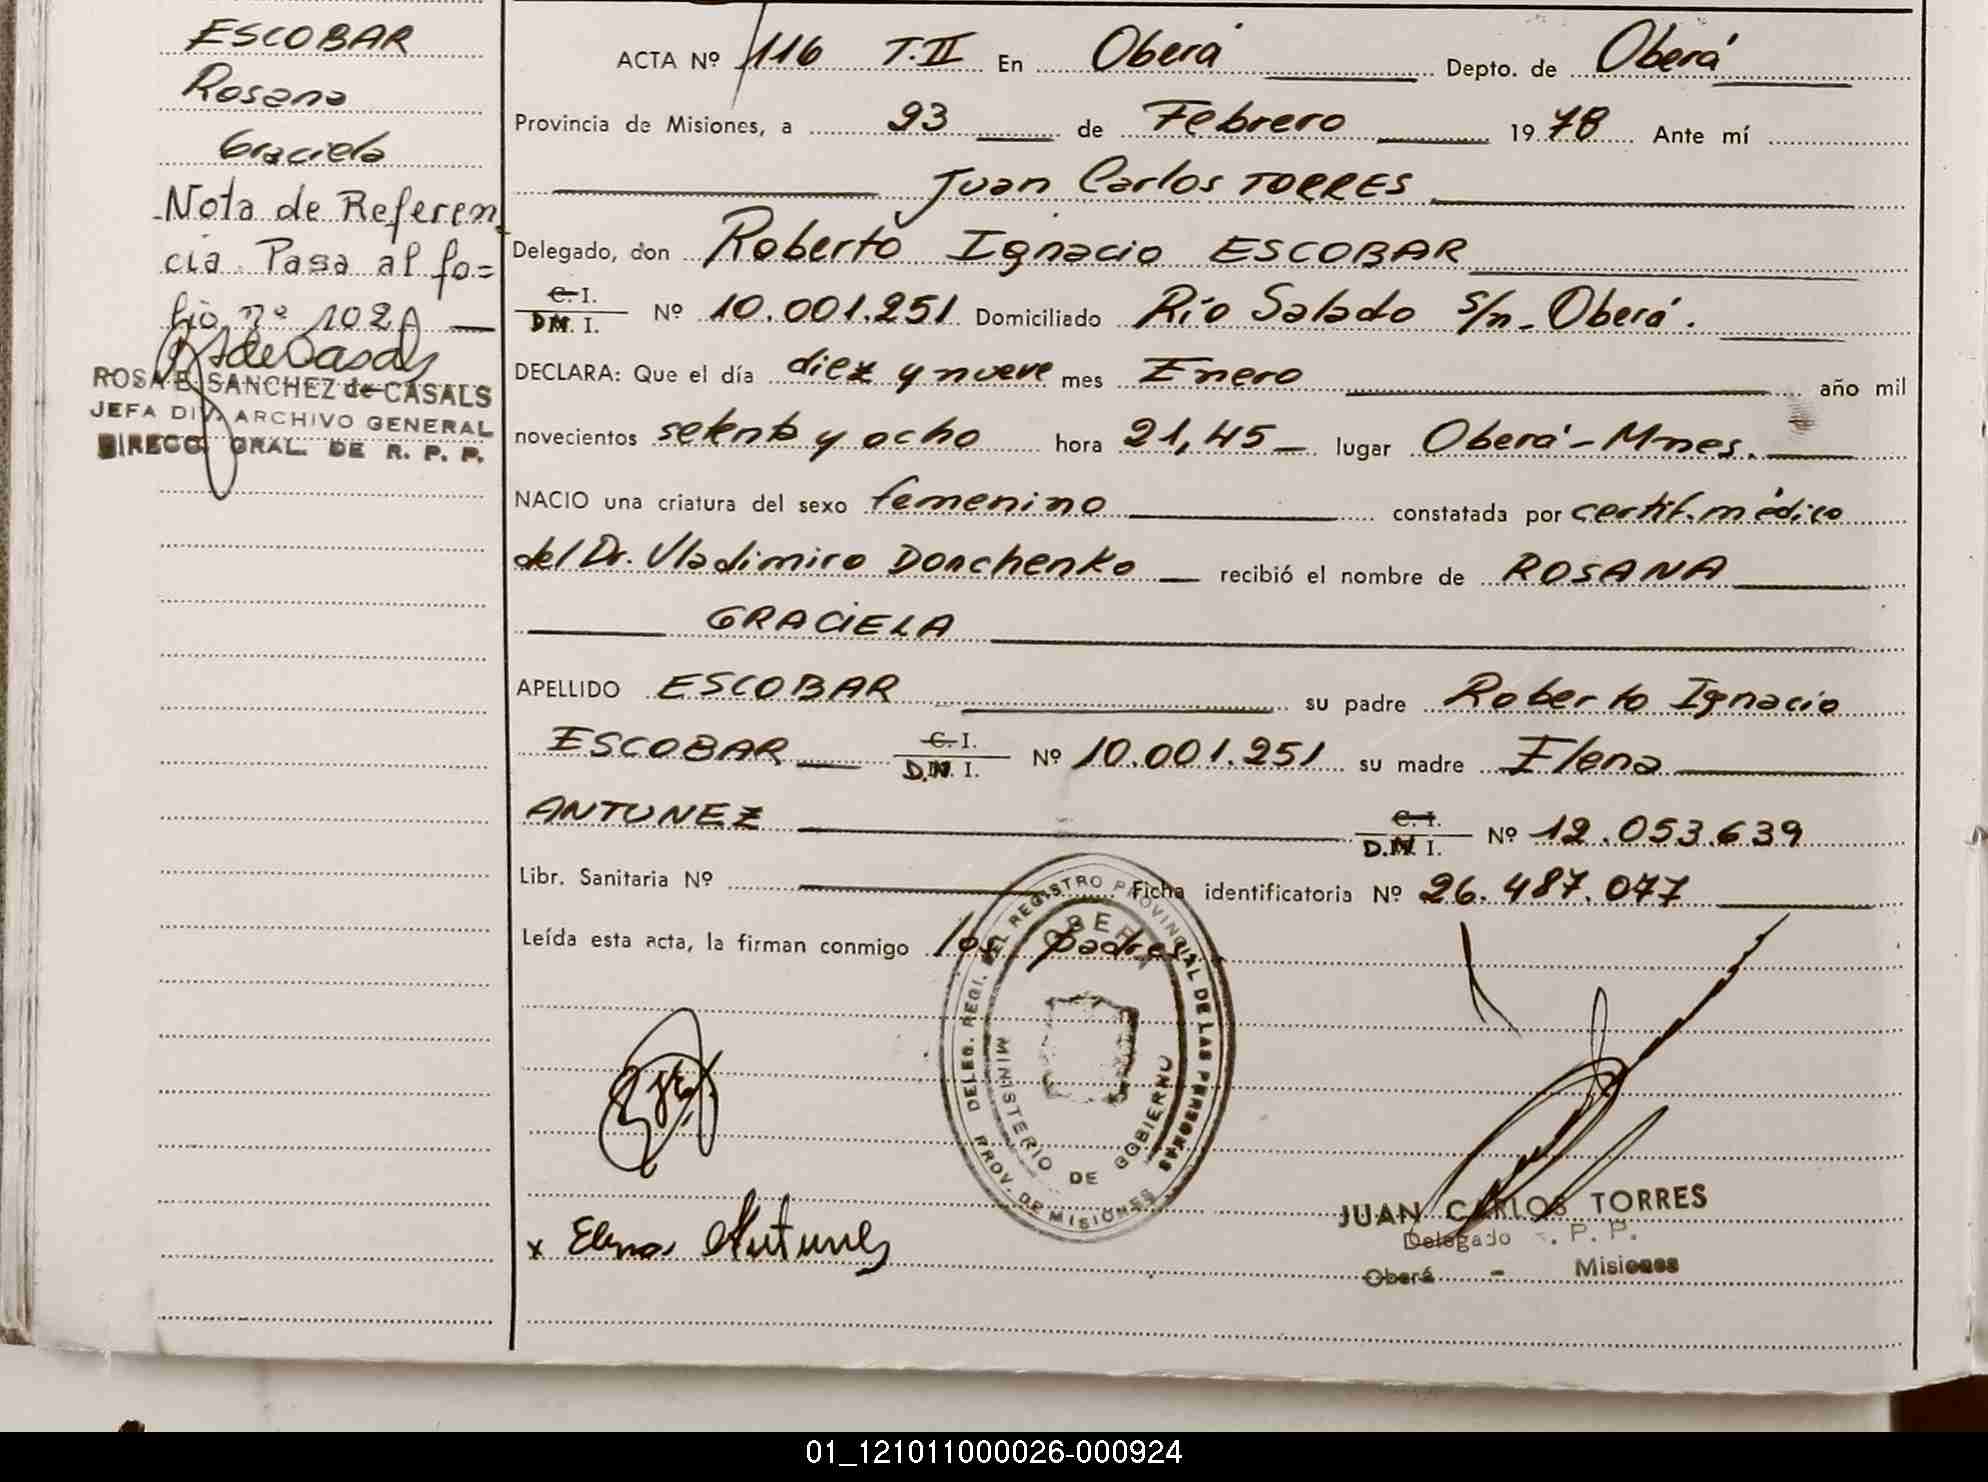 ESCOBAR
Rosana
Graciela
Nota de Referen
cia. Pasa al fo=
lio nº 102
ROSA E. SANCHEZ de CASALS
JEFA DIV. ARCHIVO GENERAL
DIRECC. GRAL. DE R. P. P.
ACTA Nº 116 T.II En Oberá Depto. de Oberá
Provincia de Misiones, a 23 de Febrero 1978 Ante mí
Juan Carlos TORRES
Delegado, don Roberto Ignacio ESCOBAR
C. I.
D.N. I. Nº 10.001.251 Domiciliado Río Salado s/n. Oberá.
DECLARA: Que el día diez y nueve mes Enero año mil
novecientos setenta y ocho hora 21,45 lugar Oberá-Mnes.
NACIO una criatura del sexo femenino constatada por certif. médico
del Dr. Vladimiro Donchenko recibió el nombre de ROSANA
GRACIELA
APELLIDO ESCOBAR su padre Roberto Ignacio
ESCOBAR C. I.
D.N. I. Nº 10.001.251 su madre Elena
ANTUNEZ C. I.
D.N. I. Nº 12.053.639
Libr. Sanitaria Nº Ficha identificatoria Nº 26.487.077
Leída esta acta, la firman conmigo los padres.
DELEG. REGI. DEL REGISTRO PROVINCIAL DE LAS PERSONAS
OBERA
MINISTERIO DE GOBIERNO
PROV. DE MISIONES
x Elena Antunes
JUAN CARLOS TORRES
Delegado R. P. P.
Oberá - Misiones
01_121011000026-000924